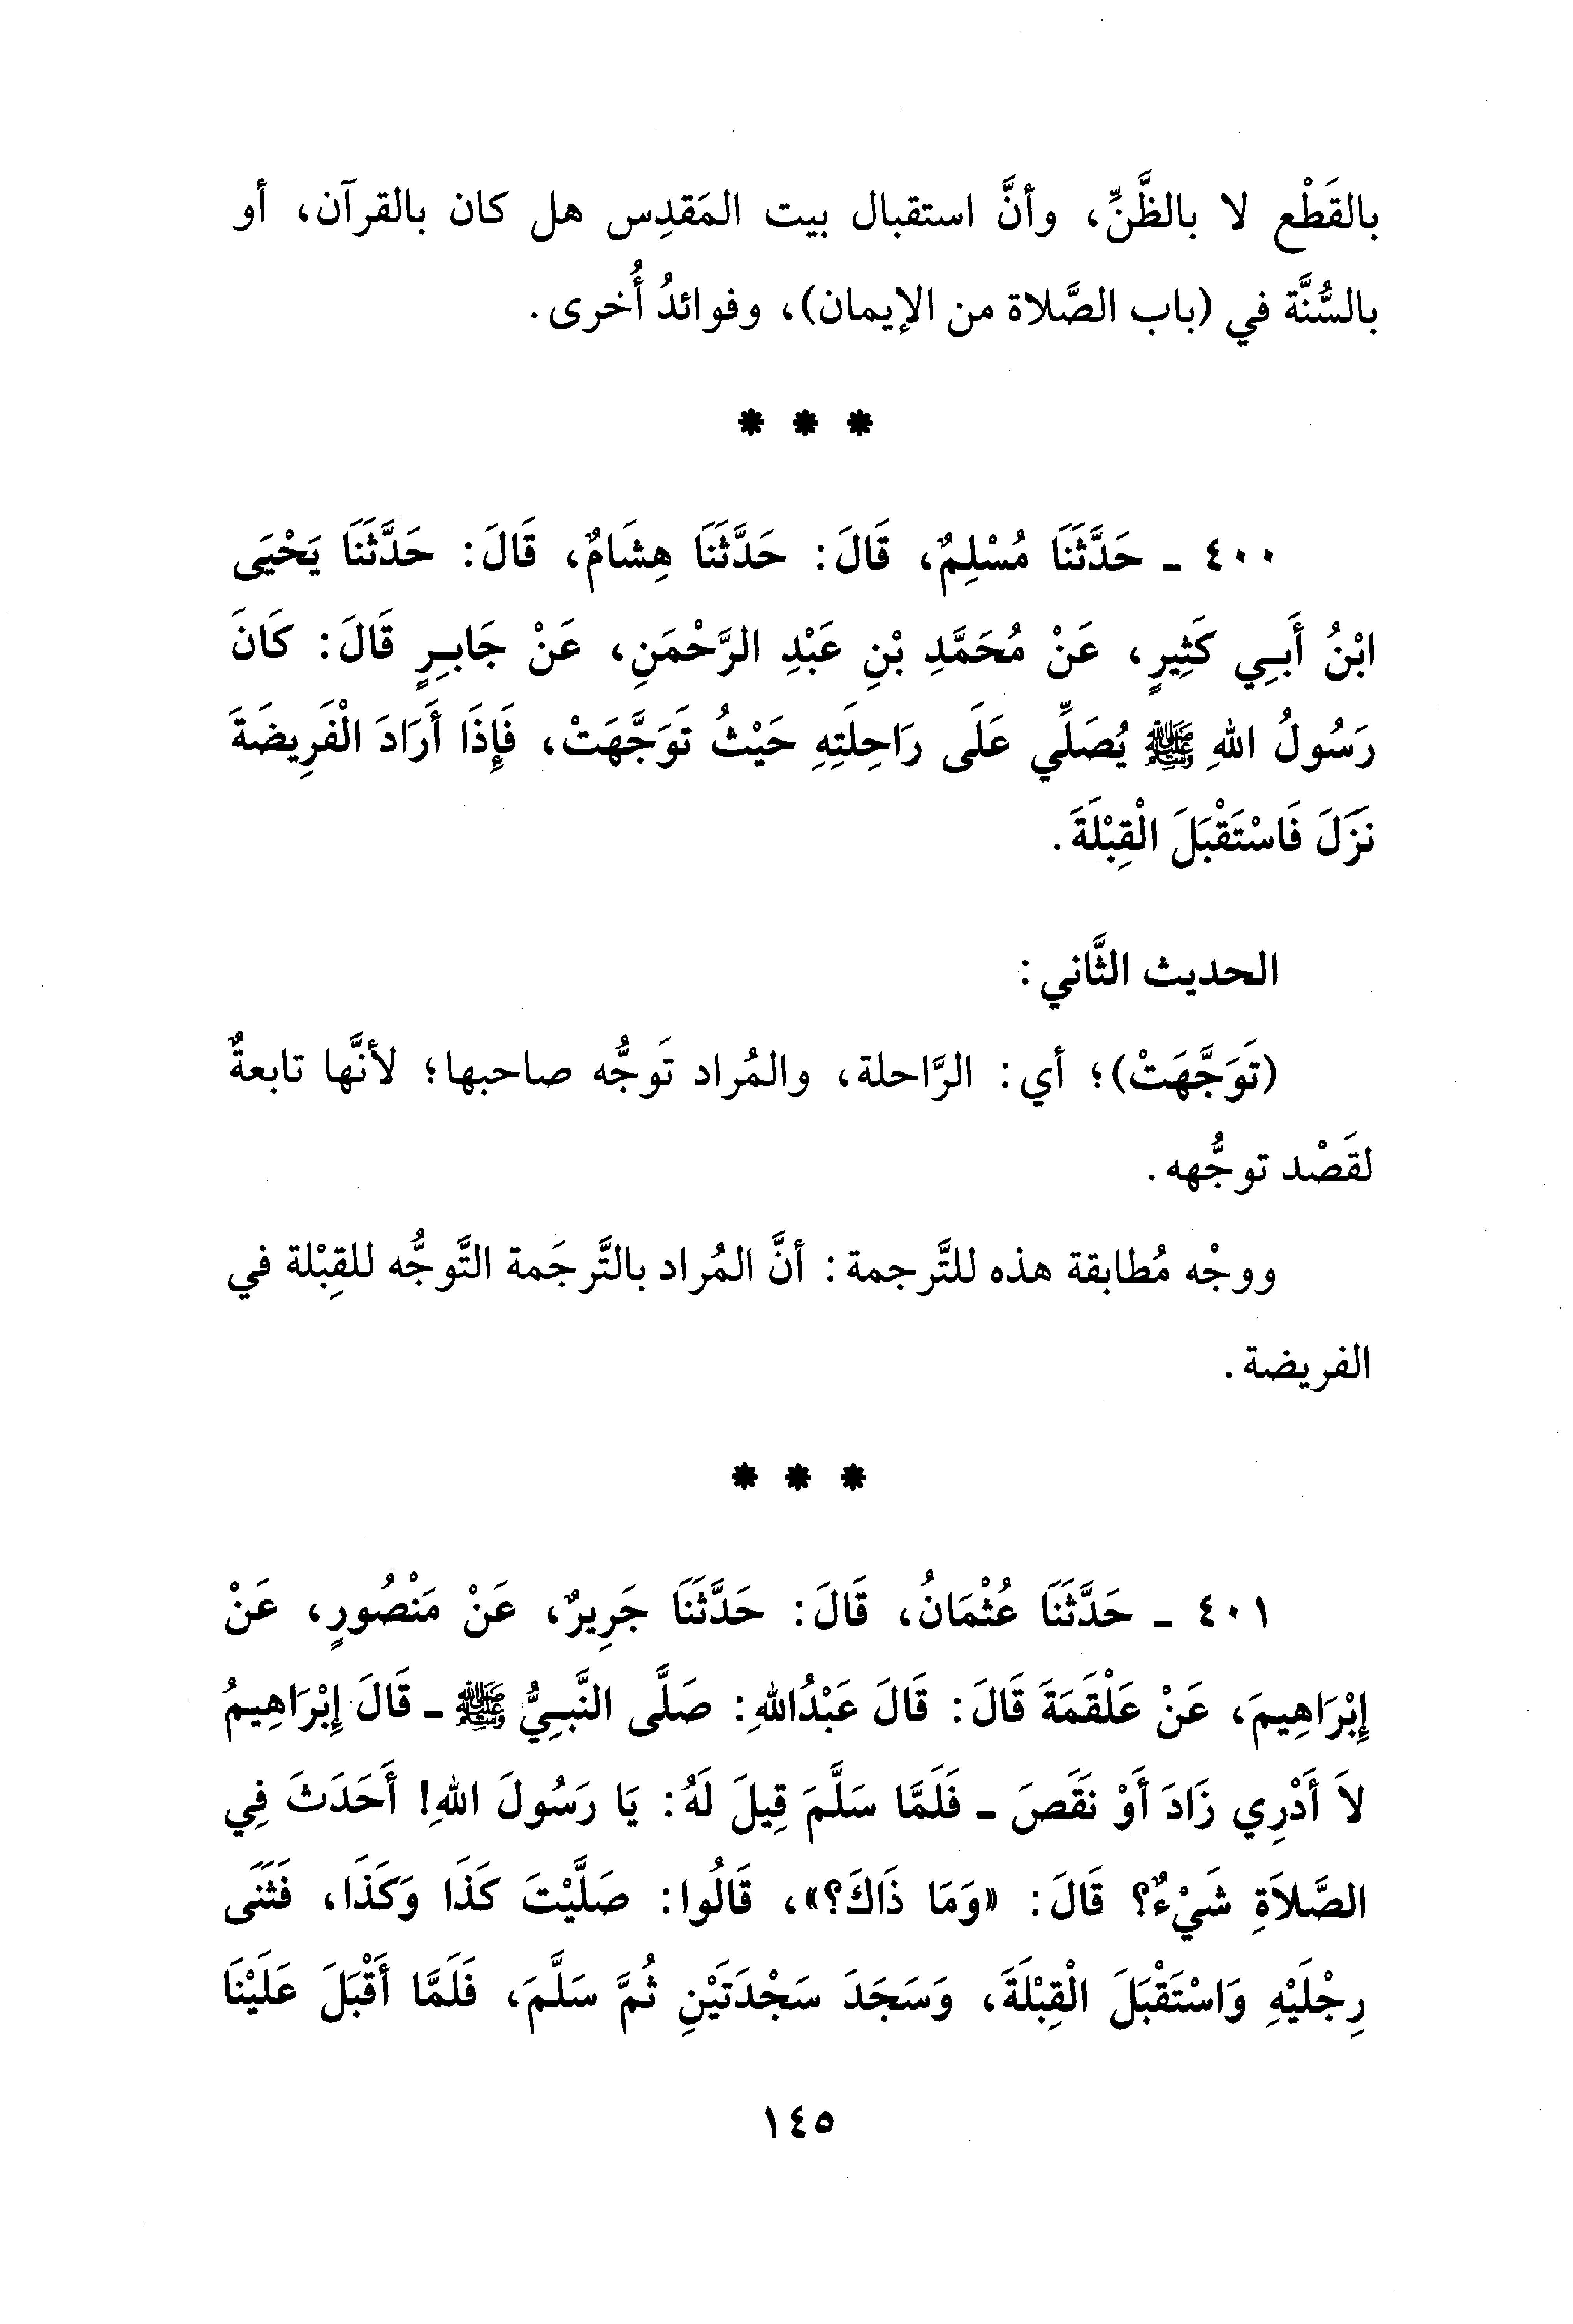 بالقَطْع لا بالظَّنِّ، وأنَّ استقبال بيت المَقدِس هل كان بالقرآن، أو
بالسُّنَّة في (باب الصَّلاة من الإيمان)، وفوائدُ أُخرى.
* * *
٤٠٠ ـ حَدَّثَنَا مُسْلِمٌ، قَالَ: حَدَّثَنَا هِشَامٌ، قَالَ: حَدَّثَنَا يَحْيَى
ابْنُ أَبِي كَثِيرٍ، عَنْ مُحَمَّدِ بْنِ عَبْدِ الرَّحْمَنِ، عَنْ جَابِرٍ قَالَ: كَانَ
رَسُولُ اللهِ ﷺ يُصَلِّي عَلَى رَاحِلَتِهِ حَيْثُ تَوَجَّهَتْ، فَإِذَا أَرَادَ الْفَرِيضَةَ
نَزَلَ فَاسْتَقْبَلَ الْقِبْلَةَ.
الحديث الثَّاني:
(تَوَجَّهَتْ)؛ أي: الرَّاحلة، والمُراد تَوجُّه صاحبها؛ لأنَّها تابعةٌ
لقَصْد توجُّهه.
ووجْه مُطابقة هذه للتَّرجمة: أنَّ المُراد بالتَّرجَمة التَّوجُّه للقِبْلة في
الفريضة.
* * *
٤٠١ ـ حَدَّثَنَا عُثْمَانُ، قَالَ: حَدَّثَنَا جَرِيرٌ، عَنْ مَنْصُورٍ، عَنْ
إِبْرَاهِيمَ، عَنْ عَلْقَمَةَ قَالَ: قَالَ عَبْدُاللهِ: صَلَّى النَّبِيُّ ﷺ ـ قَالَ إِبْرَاهِيمُ
لاَ أَدْرِي زَادَ أَوْ نَقَصَ ـ فَلَمَّا سَلَّمَ قِيلَ لَهُ: يَا رَسُولَ اللهِ! أَحَدَثَ فِي
الصَّلاَةِ شَيْءٌ؟ قَالَ: «وَمَا ذَاكَ؟»، قَالُوا: صَلَّيْتَ كَذَا وَكَذَا، فَثَنَى
رِجْلَيْهِ وَاسْتَقْبَلَ الْقِبْلَةَ، وَسَجَدَ سَجْدَتَيْنِ ثُمَّ سَلَّمَ، فَلَمَّا أَقْبَلَ عَلَيْنَا
١٤٥